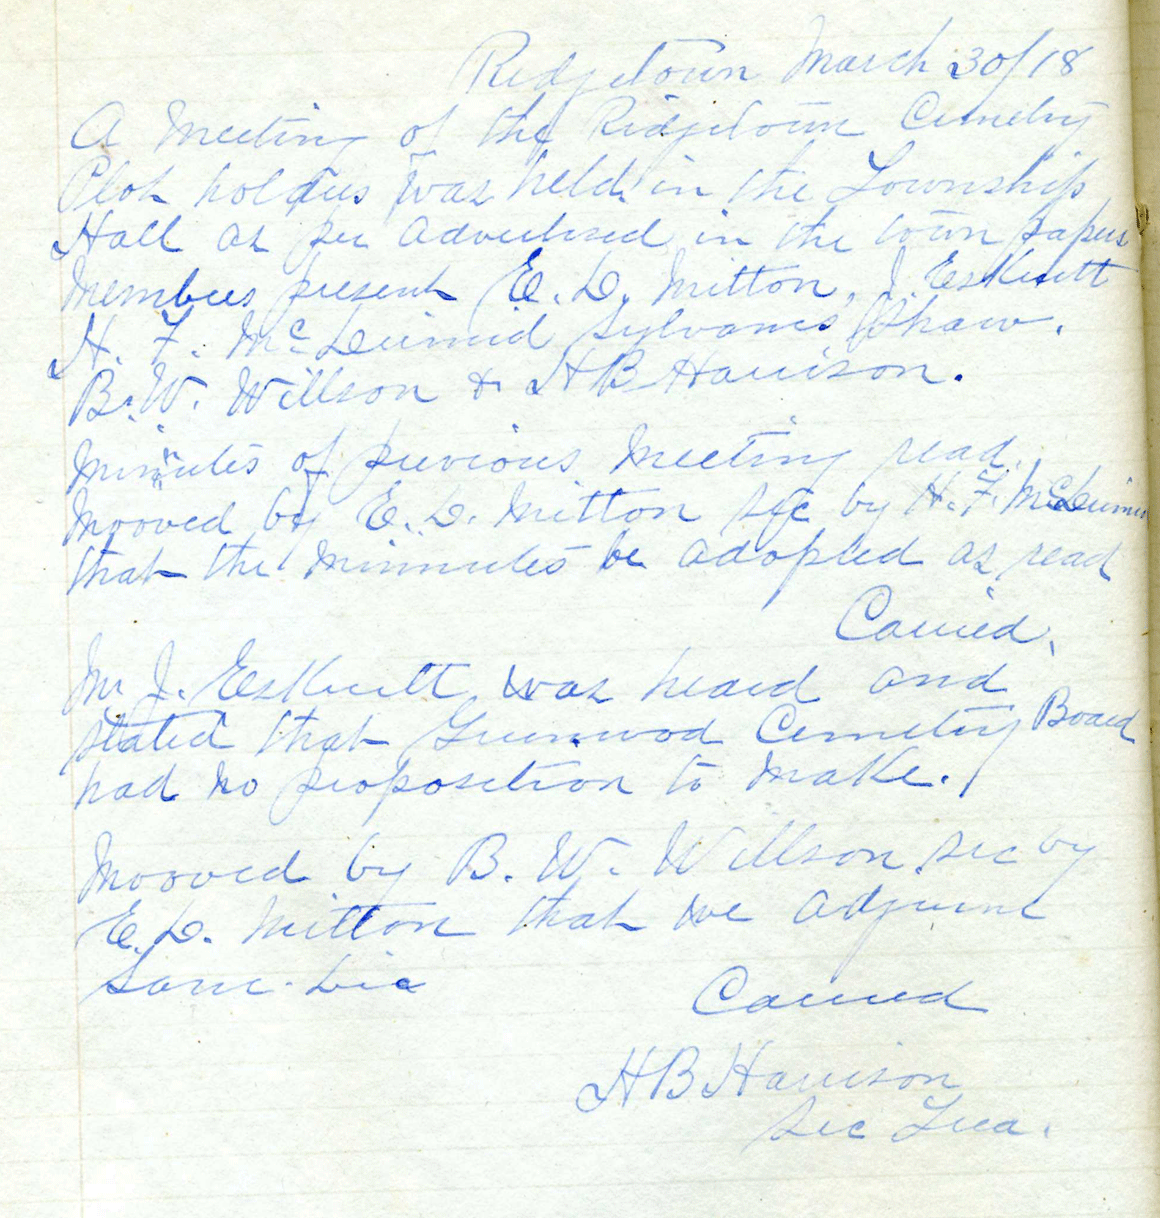 Ridgetown March 30/18
A Meeting of the Ridgetown Cemetry
Plot holders was held in the Township
Hall as per advertised in the town papers
Members present E. D. Mitton, J. Eskritt
H. F. McDiarmid Sylvanus Shaw.
B. W. Willson & H B Harrison.
Minnutes of previous Meeting read.
Mooved by E. D. Mitton sec by H. F. McDiarmid
that the Minnutes be adopted as read
Carried.
Mr J. Eskritt was heard and
stated that Greenwood Cemetry Board
had no proposition to make.
Mooved by B. W. Willson sec by
E. D. Mitton that we adjurne
Carried
H B Harrison
Sec Trea.